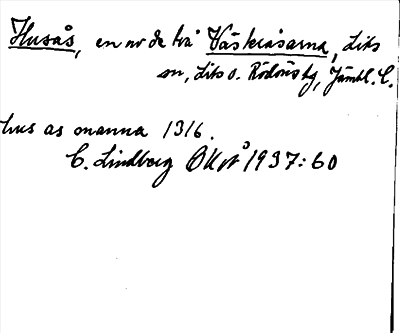 Husås, en av de två Västeråsarna, Lits
sn, Lits o. Rödöns tg, Jämtl. l.
hus as manna 1316.
C. Lindberg OKvå 1937:60